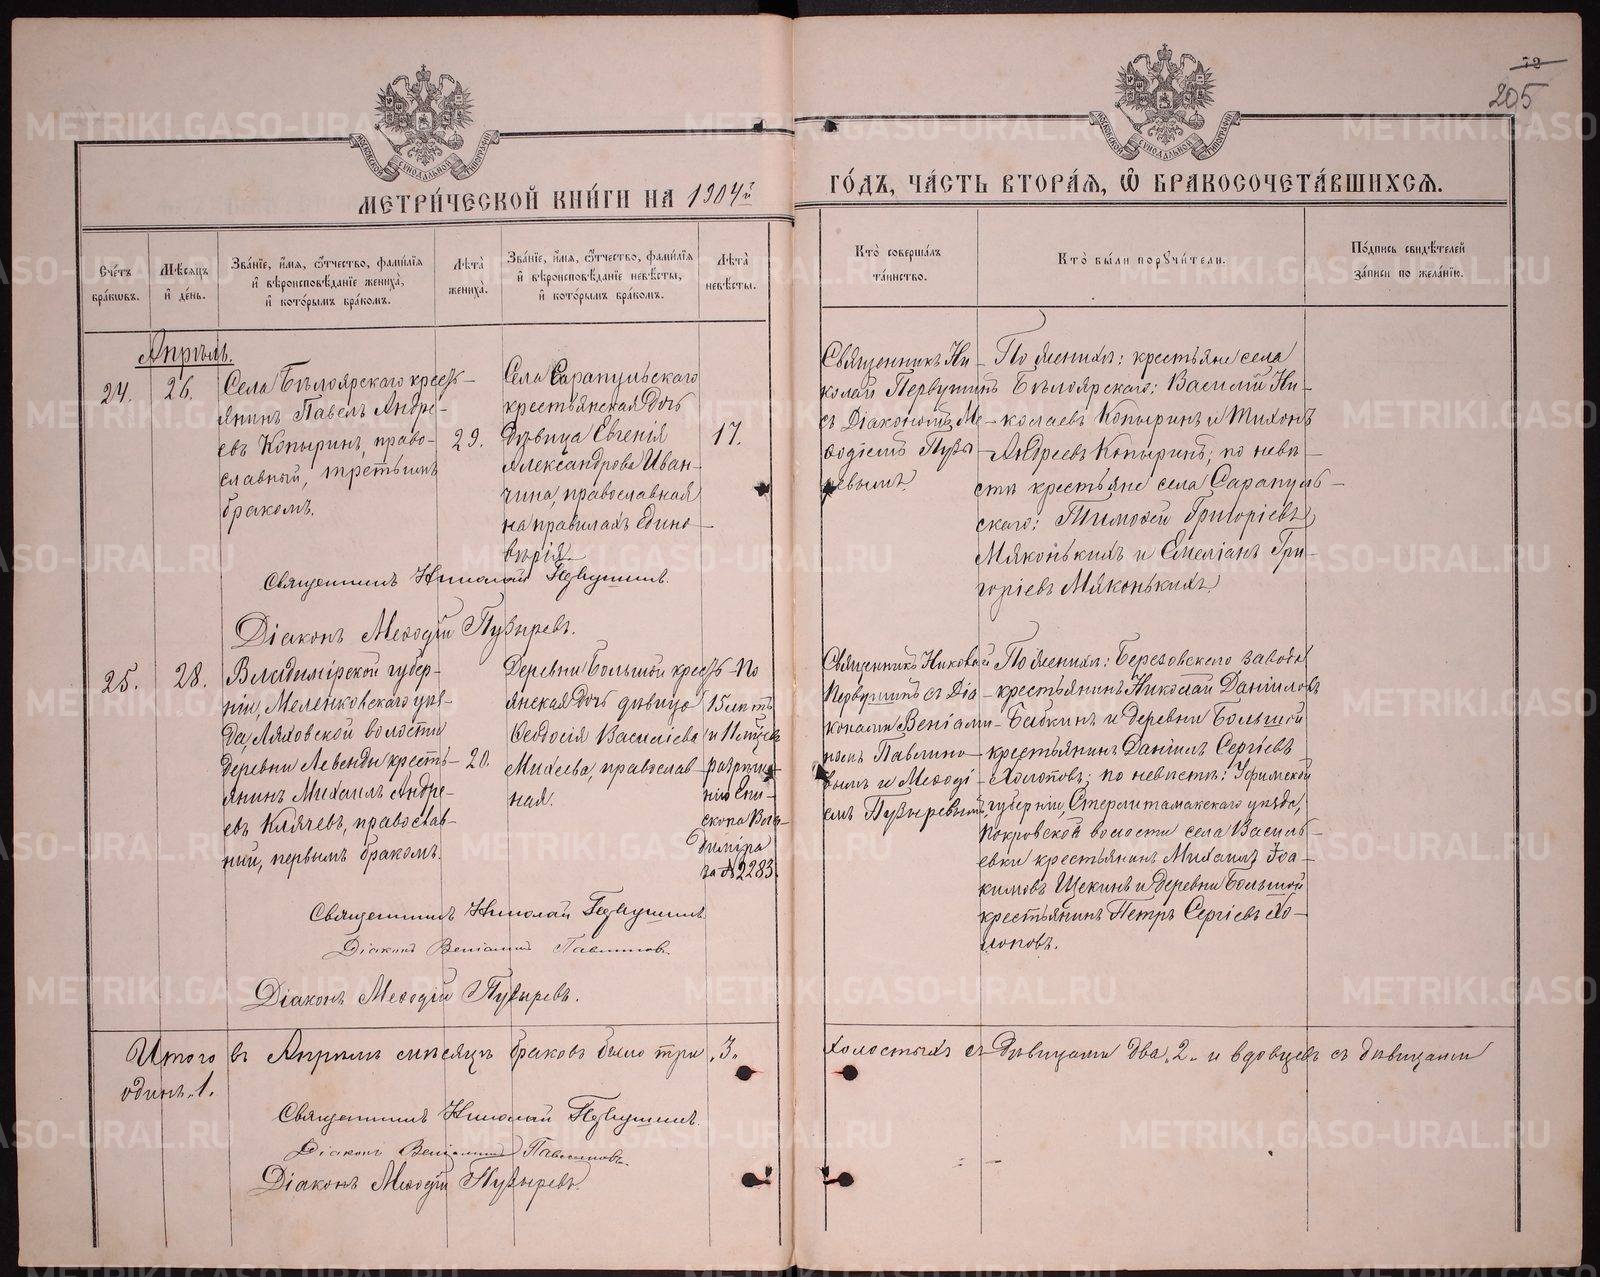 72
205
МОСКОВСКОЙ СѴНОДАЛЬНОЙ ТИПОГРАФІИ
МОСКОВСКОЙ СѴНОДАЛЬНОЙ ТИПОГРАФІИ
МЕТРИ́ЧЕСКОЙ КНИ́ГИ НА 1904й
ГО́ДЪ, ЧА́СТЬ ВТОРА́Ѧ, Ѽ БРАКОСОЧЕТА́ВШИХСѦ.
Сче́тъ бра́кѡвъ.
Мѣ́сѧцъ и҆ де́нь.
Зва́нїе, и҆́мѧ, ѻ҆́тчество, фами́лїѧ и҆ вѣроисповѣ́данїе жениха̀, и҆ кото́рымъ бра́комъ.
Лѣ́та жениха̀.
Зва́нїе, и҆́мѧ, ѻ҆́тчество, фами́лїѧ и҆ вѣроисповѣ́данїе невѣ́сты, и҆ кото́рымъ бра́комъ.
Лѣ́та невѣ́сты.
Кто̀ соверша́лъ та́инство.
Кто̀ бы́ли порꙋчи́тели.
По́дпись свидѣ́телей за́писи по жела́нїю.
Апрѣль.
24.
26.
Села Бѣлоярскаго кресть-
янинъ Павелъ Андре-
евъ Копыринъ, право-
славный, третьимъ
бракомъ.
29.
Села Сарапульскаго
крестьянская дочь
дѣвица Евгенія
Александрова Иван-
чина, православная
на правилахъ Едино-
вѣрія
17.
Священникъ Ни-
колай Первушинъ
съ Діакономъ Ме-
ѳодіемъ Пузы-
ревымъ.
По женихѣ: крестьяне села
Бѣлоярскаго: Василій Ни-
колаевъ Копыринъ и Тихонъ
Андреевъ Копыринъ; по невѣ-
стѣ крестьяне села Сарапуль-
скаго: Тимоѳей Григоріевъ
Мяконькихъ и Емеліанъ Гри-
горіевъ Мяконькихъ.
Священникъ Николай Первушинъ.
Діаконъ Меѳодій Пузыревъ.
25.
28.
Владимірской губер-
ніи, Меленковскаго уѣз-
да, Ляховской волости
деревни Левенды кресть-
янинъ Михаилъ Андре-
евъ Клячевъ, православ-
ный, первымъ бракомъ.
20.
Деревни Большой кресть-
янская дочь дѣвица
Ѳеодосія Василіева
Михеева, православ-
ная.
По
15 лѣтъ
и
разрѣше-
нію Епи-
скопа Вла-
диміра
за № 2283.
Священникъ Николай
Первушинъ съ Діа-
конами Веніами-
номъ Павлино-
вымъ и Меѳоді-
емъ Пузыревымъ.
По женихѣ: Березовскаго завода
крестьянинъ Николай Даніиловъ
Бабкинъ и деревни Большой
крестьянинъ Даніилъ Сергіевъ
Холоповъ; по невѣстѣ: Уфимской
губерніи, Стерлитамакскаго уѣзда,
Покровской волости села Василь-
евки крестьянинъ Михаилъ Іоа-
кимовъ Щекинъ и деревни Большой
крестьянинъ Петръ Сергіевъ Хо-
лоповъ.
Священникъ Николай Первушинъ.
Діаконъ Веніаминъ Павлиновъ.
Діаконъ Меѳодій Пузыревъ.
Итого въ Апрѣлѣ мѣсяцѣ браковъ было три „3„ холостыхъ съ дѣвицами два „2„ и вдовцевъ съ дѣвицами
одинъ „1.
Священникъ Николай Первушинъ.
Діаконъ Веніаминъ Павлиновъ.
Діаконъ Меѳодій Пузыревъ.
METRIKI.GASO-URAL.RU